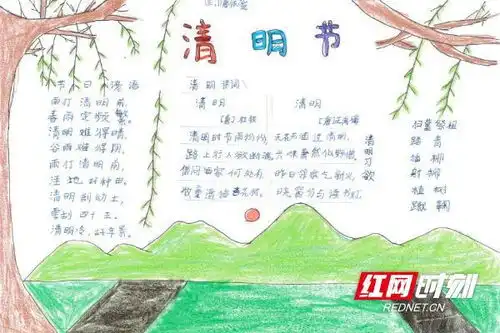 清明节
节日谚语
雨打清明前,
春雨定频繁
清明难得晴
谷雨难得阴.
雨打清明前,
洼地好种田.
清明刮动土,
要刮四十五.
清明冷,好年景.
清明诗词
清明
杜牧
清明时节雨纷纷
路上行人欲断魂
借问酒家何处有
牧童遥指杏花村.
清明
无花无酒过清明,
兴味萧然似野僧.
昨日邻家乞新火,
晓窗分与读书灯.
清明习俗
扫墓祭祖
踏青
插柳
射柳
植树
蹴鞠
红网时刻
REDNET.CN